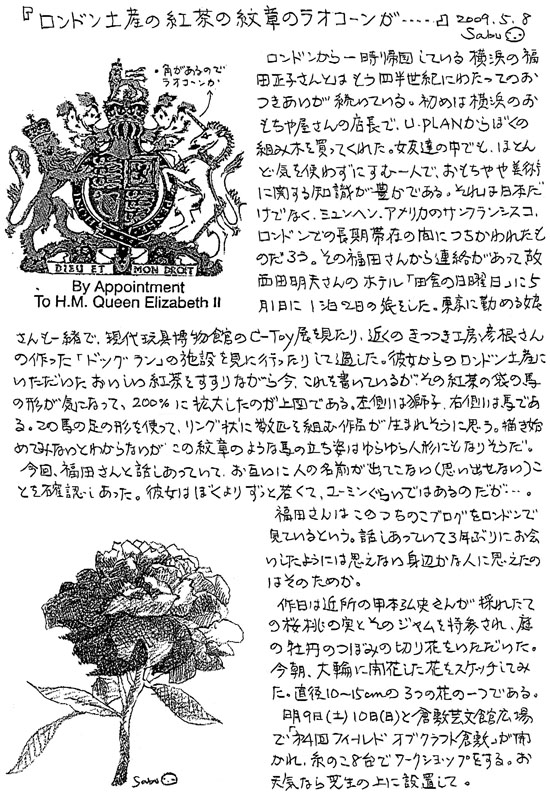 『ロンドン土産の紅茶の紋章のラオコーンが‥‥‥』 2009.5.8
Sabu
・角があるので
ラオコーンか
DIEU ET MON DROIT
By Appointment
To H.M. Queen Elizabeth II
ロンドンから一時帰国している横浜の福
田正子さんとはもう四半世紀にわたってのお
つきあいが続いている。初めは横浜のお
もちゃ屋さんの店長で、U-PLANからぼくの
組み木を買ってくれた。女友達の中でも、ほとん
ど気を使わずにすむ一人で、おもちゃや美術
に関する知識が豊かである。それは日本だ
けでなく、ミュンヘン、アメリカのサンフランシスコ、
ロンドンでの長期滞在の間につちかわれたも
のだろう。その福田さんから連絡があって故
西田明夫さんのホテル「田舎の日曜日」に5
月1日に1泊2日の旅をした。東京に勤める娘
さんも一緒で、現代玩具博物館のC-Toy展を見たり、近くのきつつき工房、彦根さん
の作った「ドッグラン」の施設を見に行ったりして過した。彼女からのロンドン土産に
いただいたおいしい紅茶をすすりながら今、これを書いているが、その紅茶の袋の馬
の形が気になって、200%に拡大したのが上図である。左側は獅子、右側は馬であ
る。20馬の足の形を使って、リング状に数匹を組む作品が生まれそうに思う。描き始
めてみないとわからないが この紋章のような馬の立ち姿はゆらゆら人形にもなりそうだ。
今回、福田さんと話しあっていて、お互いに人の名前が出てこない(思い出せない)こ
とを確認しあった。彼女はぼくよりずっと若くて、ユーミンぐらいではあるのだが…。
福田さんはこのつちのこブログをロンドンで
見ているという。話しあっていて3年ぶりにお会
いしたようには思えない身辺かな人に思えたの
はそのためか。
昨日は近所の甲本弘史さんが採れたて
の桜桃の実とそのジャムを持参され、庭
の牡丹のつぼみの切り花をいただいた。
今朝、大輪に開花した花をスケッチしてみ
た。直径10〜15cmの3つの花の一つである。
明9日(土)10日(日)と倉敷芸文館広場
で「第4回フィールド オブクラフト倉敷」が開
かれ、糸のこ8台でワークショップをする。お
天気なら芝生の上に設置して。
Sabu